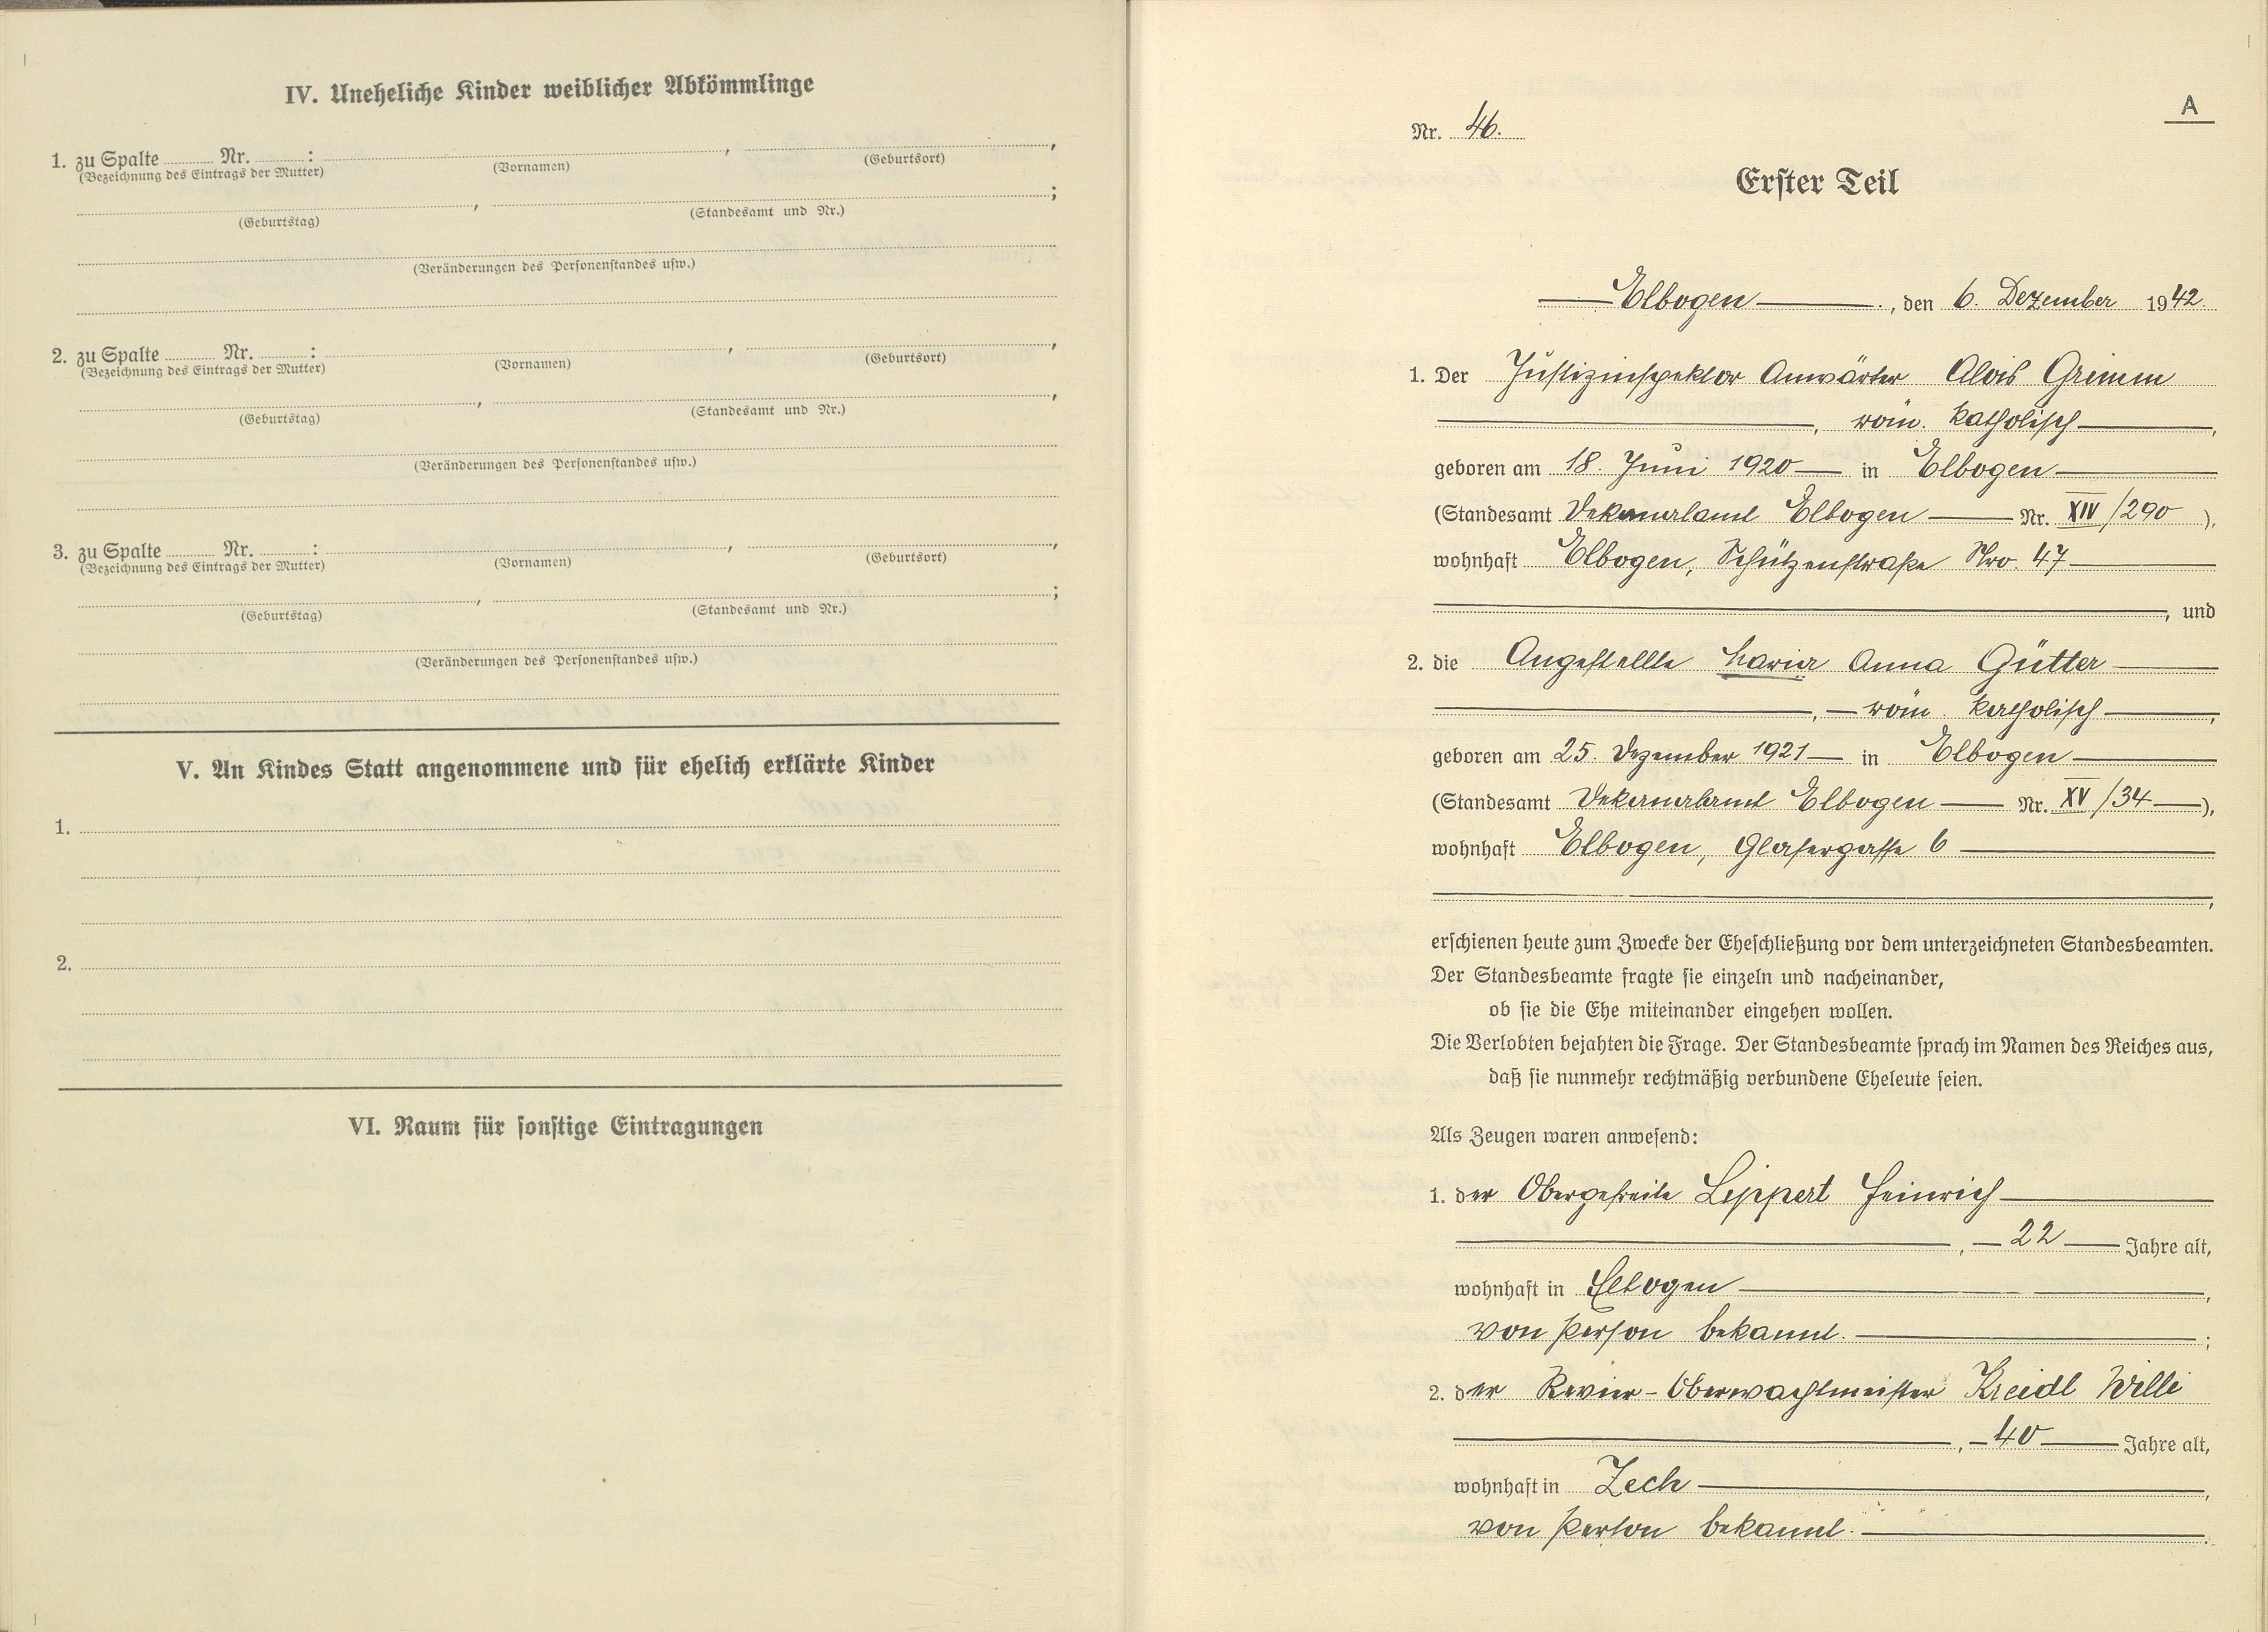 IV. Uneheliche Kinder weiblicher Abkömmlinge
1. zu Spalte Nr. : , ,
(Bezeichnung des Eintrags der Mutter) (Vornamen) (Geburtsort)
, ;
(Geburtstag) (Standesamt und Nr.)
(Veränderungen des Personenstandes usw.)
2. zu Spalte Nr. : , ,
(Bezeichnung des Eintrags der Mutter) (Vornamen) (Geburtsort)
, ,
(Geburtstag) (Standesamt und Nr.)
(Veränderungen des Personenstandes usw.)
3. zu Spalte Nr. : , ,
(Bezeichnung des Eintrags der Mutter) (Vornamen) (Geburtsort)
, ;
(Geburtstag) (Standesamt und Nr.)
(Veränderungen des Personenstandes usw.)
V. An Kindes Statt angenommene und für ehelich erklärte Kinder
1.
2.
VI. Raum für sonstige Eintragungen
A
Nr. 46.
Erster Teil
Elbogen, den 6. Dezember 1942.
1. Der Justizinspektor Anwärter Alois Grimm
, röm. katholisch,
geboren am 18. Juni 1920 in Elbogen
(Standesamt Dekanalamt Elbogen Nr. XIV/290),
wohnhaft Elbogen, Schützenstraße Nro. 47
, und
2. die Angestellte Maria Anna Gütter
, röm. katholisch,
geboren am 25. Dezember 1921 in Elbogen
(Standesamt Dekanalamt Elbogen Nr. XV/34),
wohnhaft Elbogen, Glasergasse 6
,
erschienen heute zum Zwecke der Eheschließung vor dem unterzeichneten Standesbeamten.
Der Standesbeamte fragte sie einzeln und nacheinander,
ob sie die Ehe miteinander eingehen wollen.
Die Verlobten bejahten die Frage. Der Standesbeamte sprach im Namen des Reiches aus,
daß sie nunmehr rechtmäßig verbundene Eheleute seien.
Als Zeugen waren anwesend:
1. der Obergefreite Lippert Heinrich
, 22 Jahre alt,
wohnhaft in Elbogen,
von Person bekannt.;
2. der Revier-Oberwachtmeister Kreidl Willi
, 40 Jahre alt,
wohnhaft in Zech,
von Person bekannt.